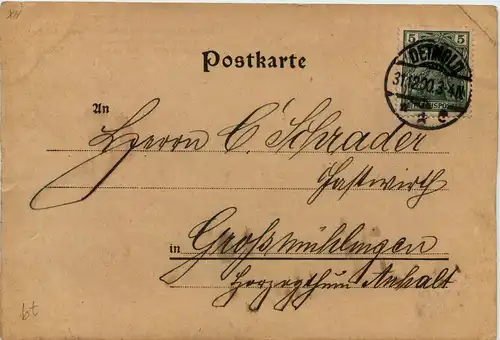 XII
5
5
Postkarte
DETMOLD
31.12.00.3-4N.
REICHSPOST
An
Herrn C. Schrader
Gastwirth
in Großmühlingen
Herzogthum Anhalt
bt